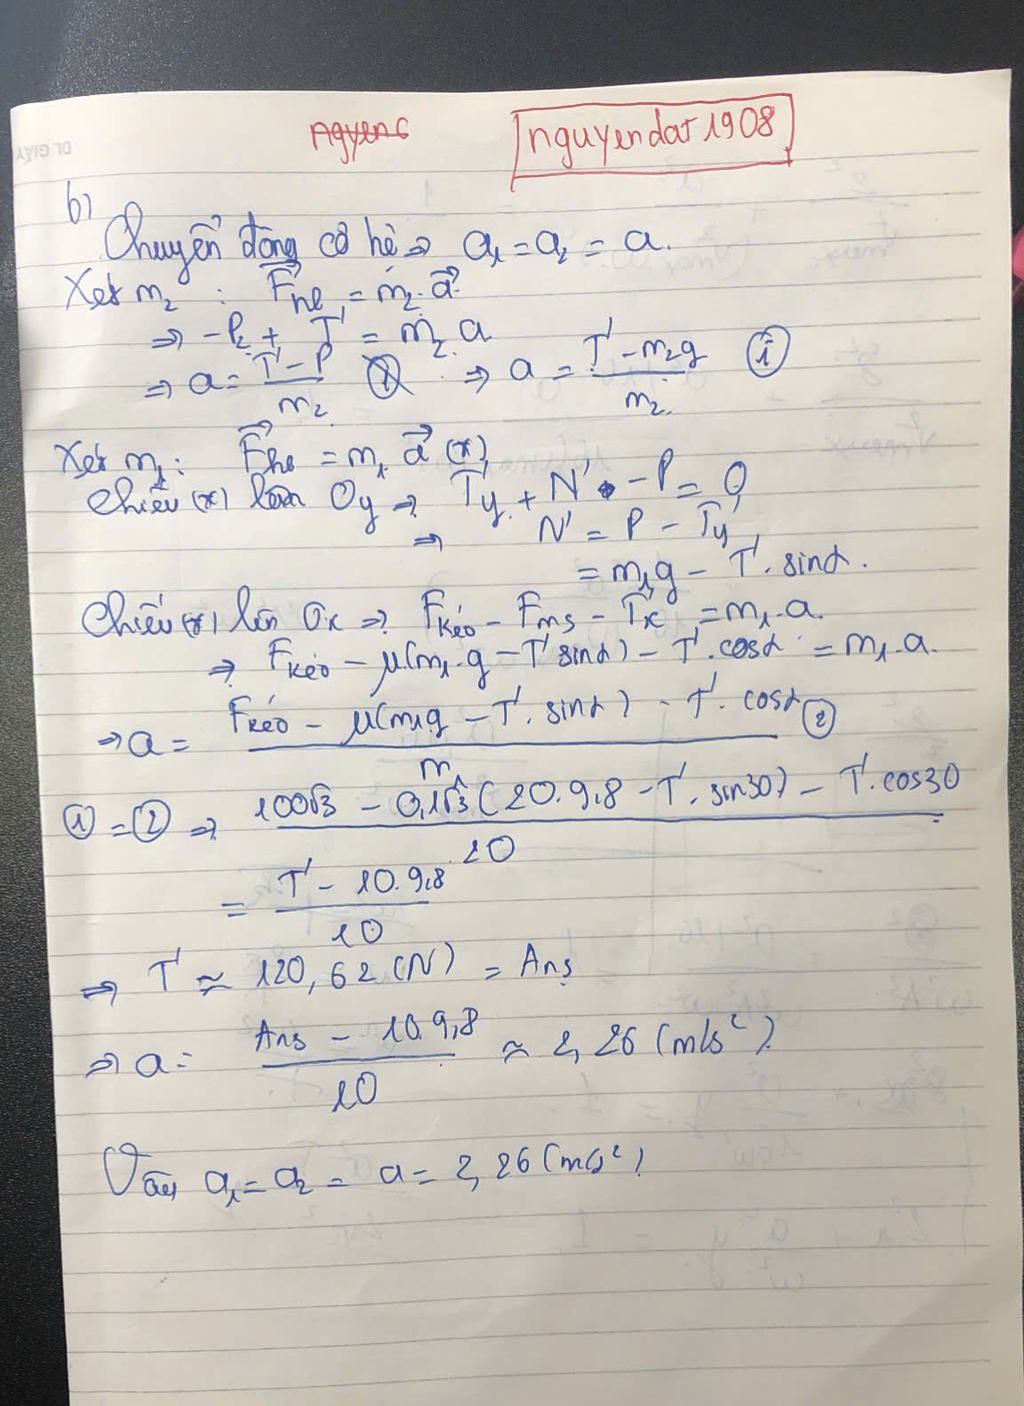 nguyendat1908
b)
Chuyển động cơ hệ ⇒ a₁ = a₂ = a.
Xét m₂ : F⃗hl = m₂.a⃗
⇒ -P₂ + T' = m₂.a
⇒ a = (T' - P)/m₂ ⇒ a = (T' - m₂g)/m₂ ①
Xét m₁: F⃗hl = m₁.a⃗ (*)
Chiếu (*) lên Oy ⇒ T'y + N' - P = 0
⇒ N' = P - T'y
= m₁g - T'.sinα.
Chiếu (*) lên Ox ⇒ Fkéo - Fms - T'x = m₁.a.
⇒ Fkéo - μ(m₁.g - T'sinα) - T'.cosα = m₁.a.
⇒ a = (Fkéo - μ(m₁g - T'.sinα) - T'.cosα)/m₁ ②
① = ② ⇒ (100√3 - 0,1√3(20.9,8 - T'.sin30) - T'.cos30)/20
= (T' - 10.9,8)/10
⇒ T' ≈ 120,62 (N) = Ans
⇒ a = (Ans - 10.9,8)/10 ≈ 2,26 (m/s²).
Vậy a₁ = a₂ = a = 2,26 (m/s²)